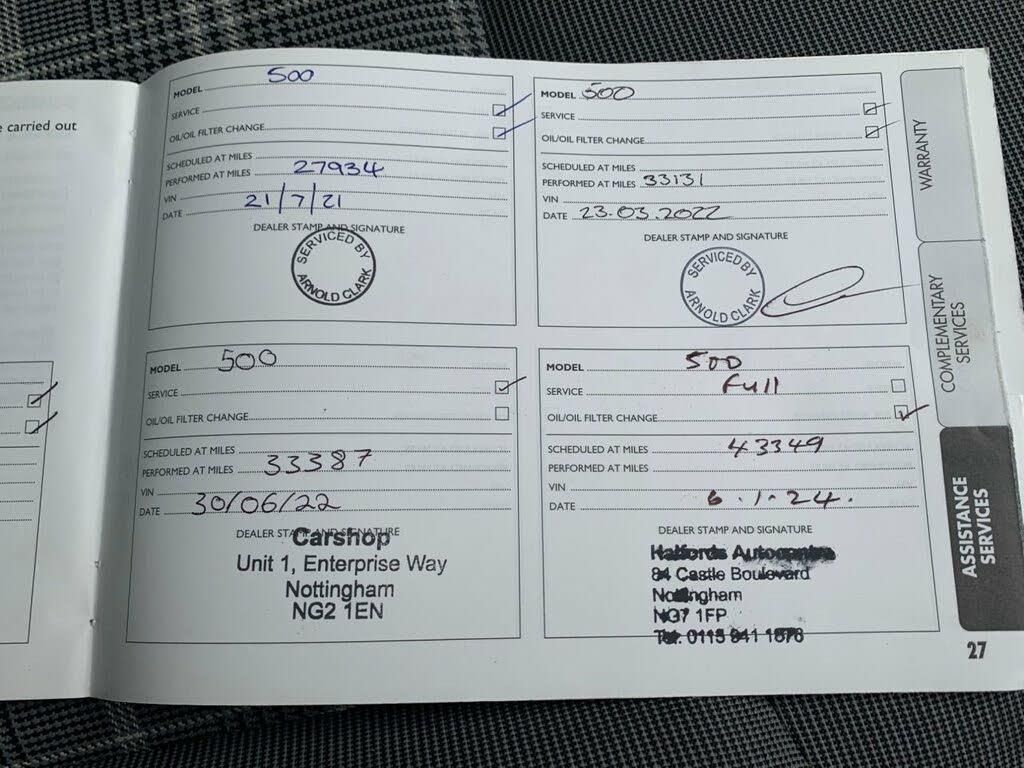 e carried out
MODEL 500
SERVICE
OIL/OIL FILTER CHANGE
SCHEDULED AT MILES
PERFORMED AT MILES 27934
VIN
DATE 21/7/21
DEALER STAMP AND SIGNATURE
SERVICED BY
ARNOLD CLARK
MODEL 500
SERVICE
OIL/OIL FILTER CHANGE
SCHEDULED AT MILES
PERFORMED AT MILES 33131
VIN
DATE 23.03.2022
DEALER STAMP AND SIGNATURE
SERVICED BY
ARNOLD CLARK
MODEL 500
SERVICE
OIL/OIL FILTER CHANGE
SCHEDULED AT MILES
PERFORMED AT MILES 33387
VIN
DATE 30/06/22
DEALER STAMP AND SIGNATURE
Carshop
Unit 1, Enterprise Way
Nottingham
NG2 1EN
MODEL 500
SERVICE Full
OIL/OIL FILTER CHANGE
SCHEDULED AT MILES 43349
PERFORMED AT MILES
VIN
DATE 6.1.24.
DEALER STAMP AND SIGNATURE
Halfords Autocentre
84 Castle Boulevard
Nottingham
NG7 1FP
Tel: 0115 941 1678
WARRANTY
COMPLEMENTARY
SERVICES
ASSISTANCE
SERVICES
27